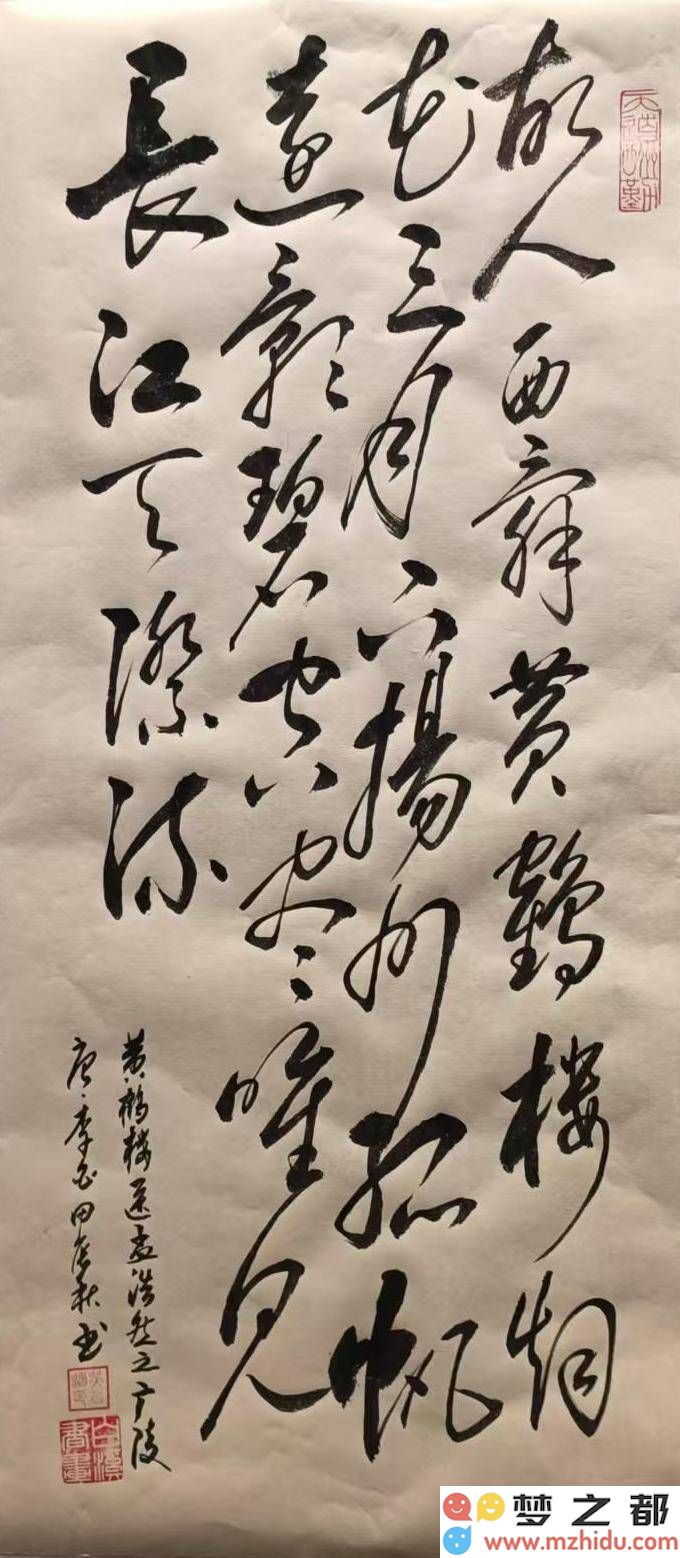 故人西辞黄鹤楼烟
花三月下揚州孤帆
遠影碧空尽唯見
長江天際流
黄鹤楼送孟浩然之广陵
唐李白甲辰秋书
天道酬勤
书画
梦之都
www.mzhidu.com